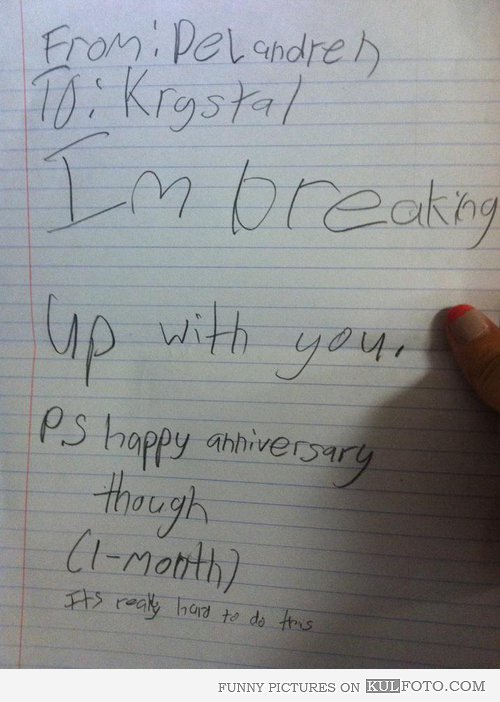 From: DeLandreh
To: Krystal
Im breaking
up with you.
P.S happy anniversary
though
(1-month)
It's really hard to do this
FUNNY PICTURES ON KULFOTO.COM